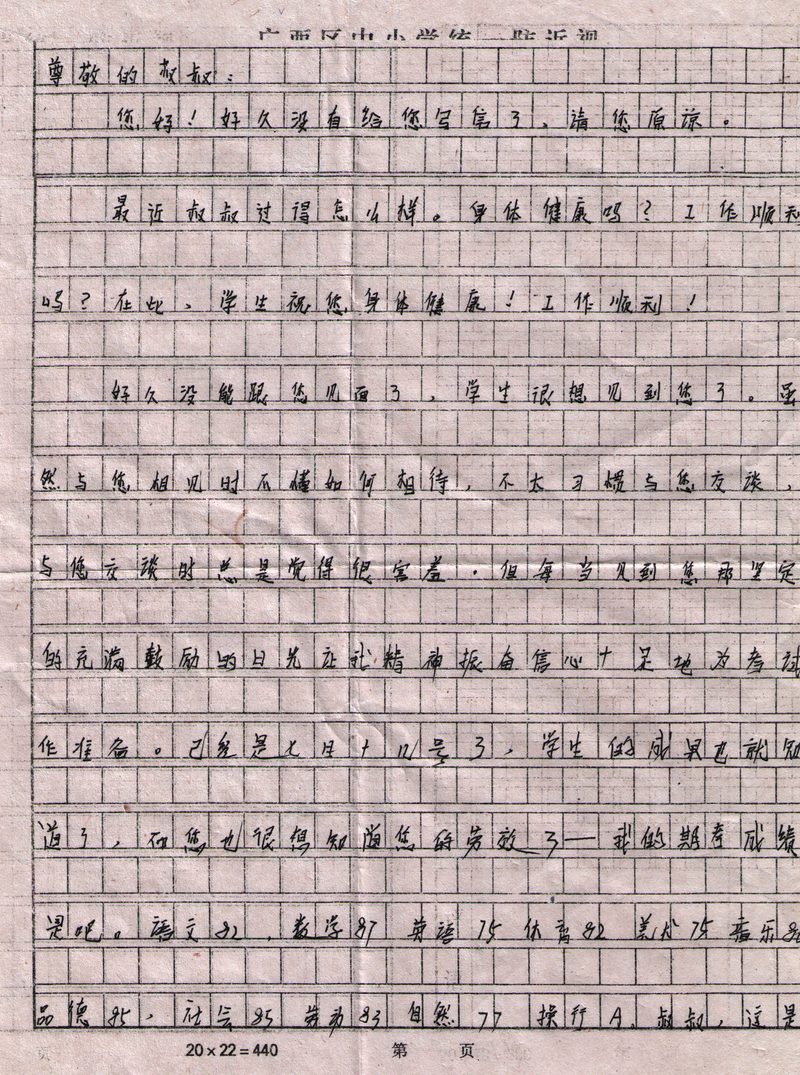 广西区中小学统一防近视
尊敬的叔叔：
您好！好久没有给您写信了，请您原谅。
最近叔叔过得怎么样。身体健康吗？工作顺利
吗？在此，学生祝您身体健康！工作顺利！
好久没能跟您见面了，学生很想见到您了。虽
然与您相见时不懂如何相待，不太习惯与您交谈，
与您交谈时总是觉得很害羞．但每当见到您那坚定
的充满鼓励的目光让我精神振奋信心十足地为考试
作准备。已经是七月十几号了，学生的成果也就知
道了，而您也很想知道您的劳效了—我的期考成绩
是吧。语文82，数学87 英语75 体育82 美术75 音乐
品德85，社会85 劳动83 自然77 操行A。叔叔，这是
20×22=440 第 页